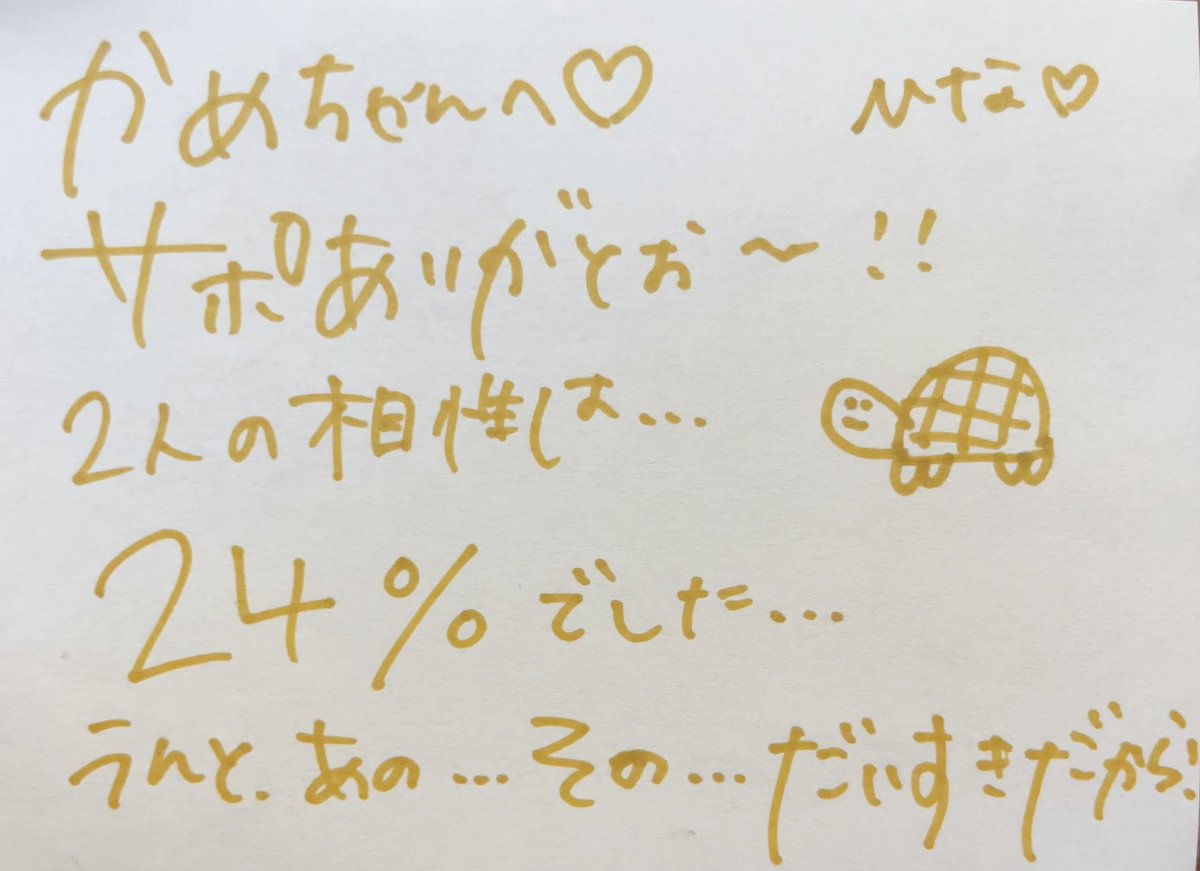 かめちゃんへ♡ ひな♡
サポありがとぉ〜!!
2人の相性は...
24%でした...
うんと、あの...その...だいすきだから!